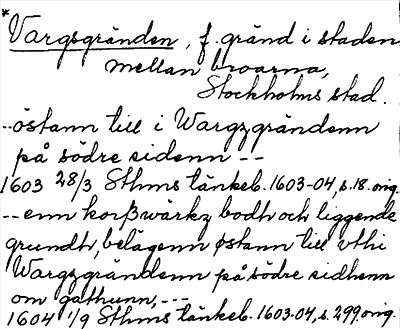 * Vargsgränden, f. gränd i staden
mellan broarna,
Stockholms stad.
--östann till i Wargzgrändenn
på södre sidenn --
1603 28/3 Sthms tänkeb. 1603-04, s. 18. orig.
-- enn korßwärkz bodh och liggende
grundh, belägenn östann till vthi
Wargzgrändenn på södre sidhenn
om gathunn, ---
1604 1/9 Sthms tänkeb. 1603-04, s. 299. orig.